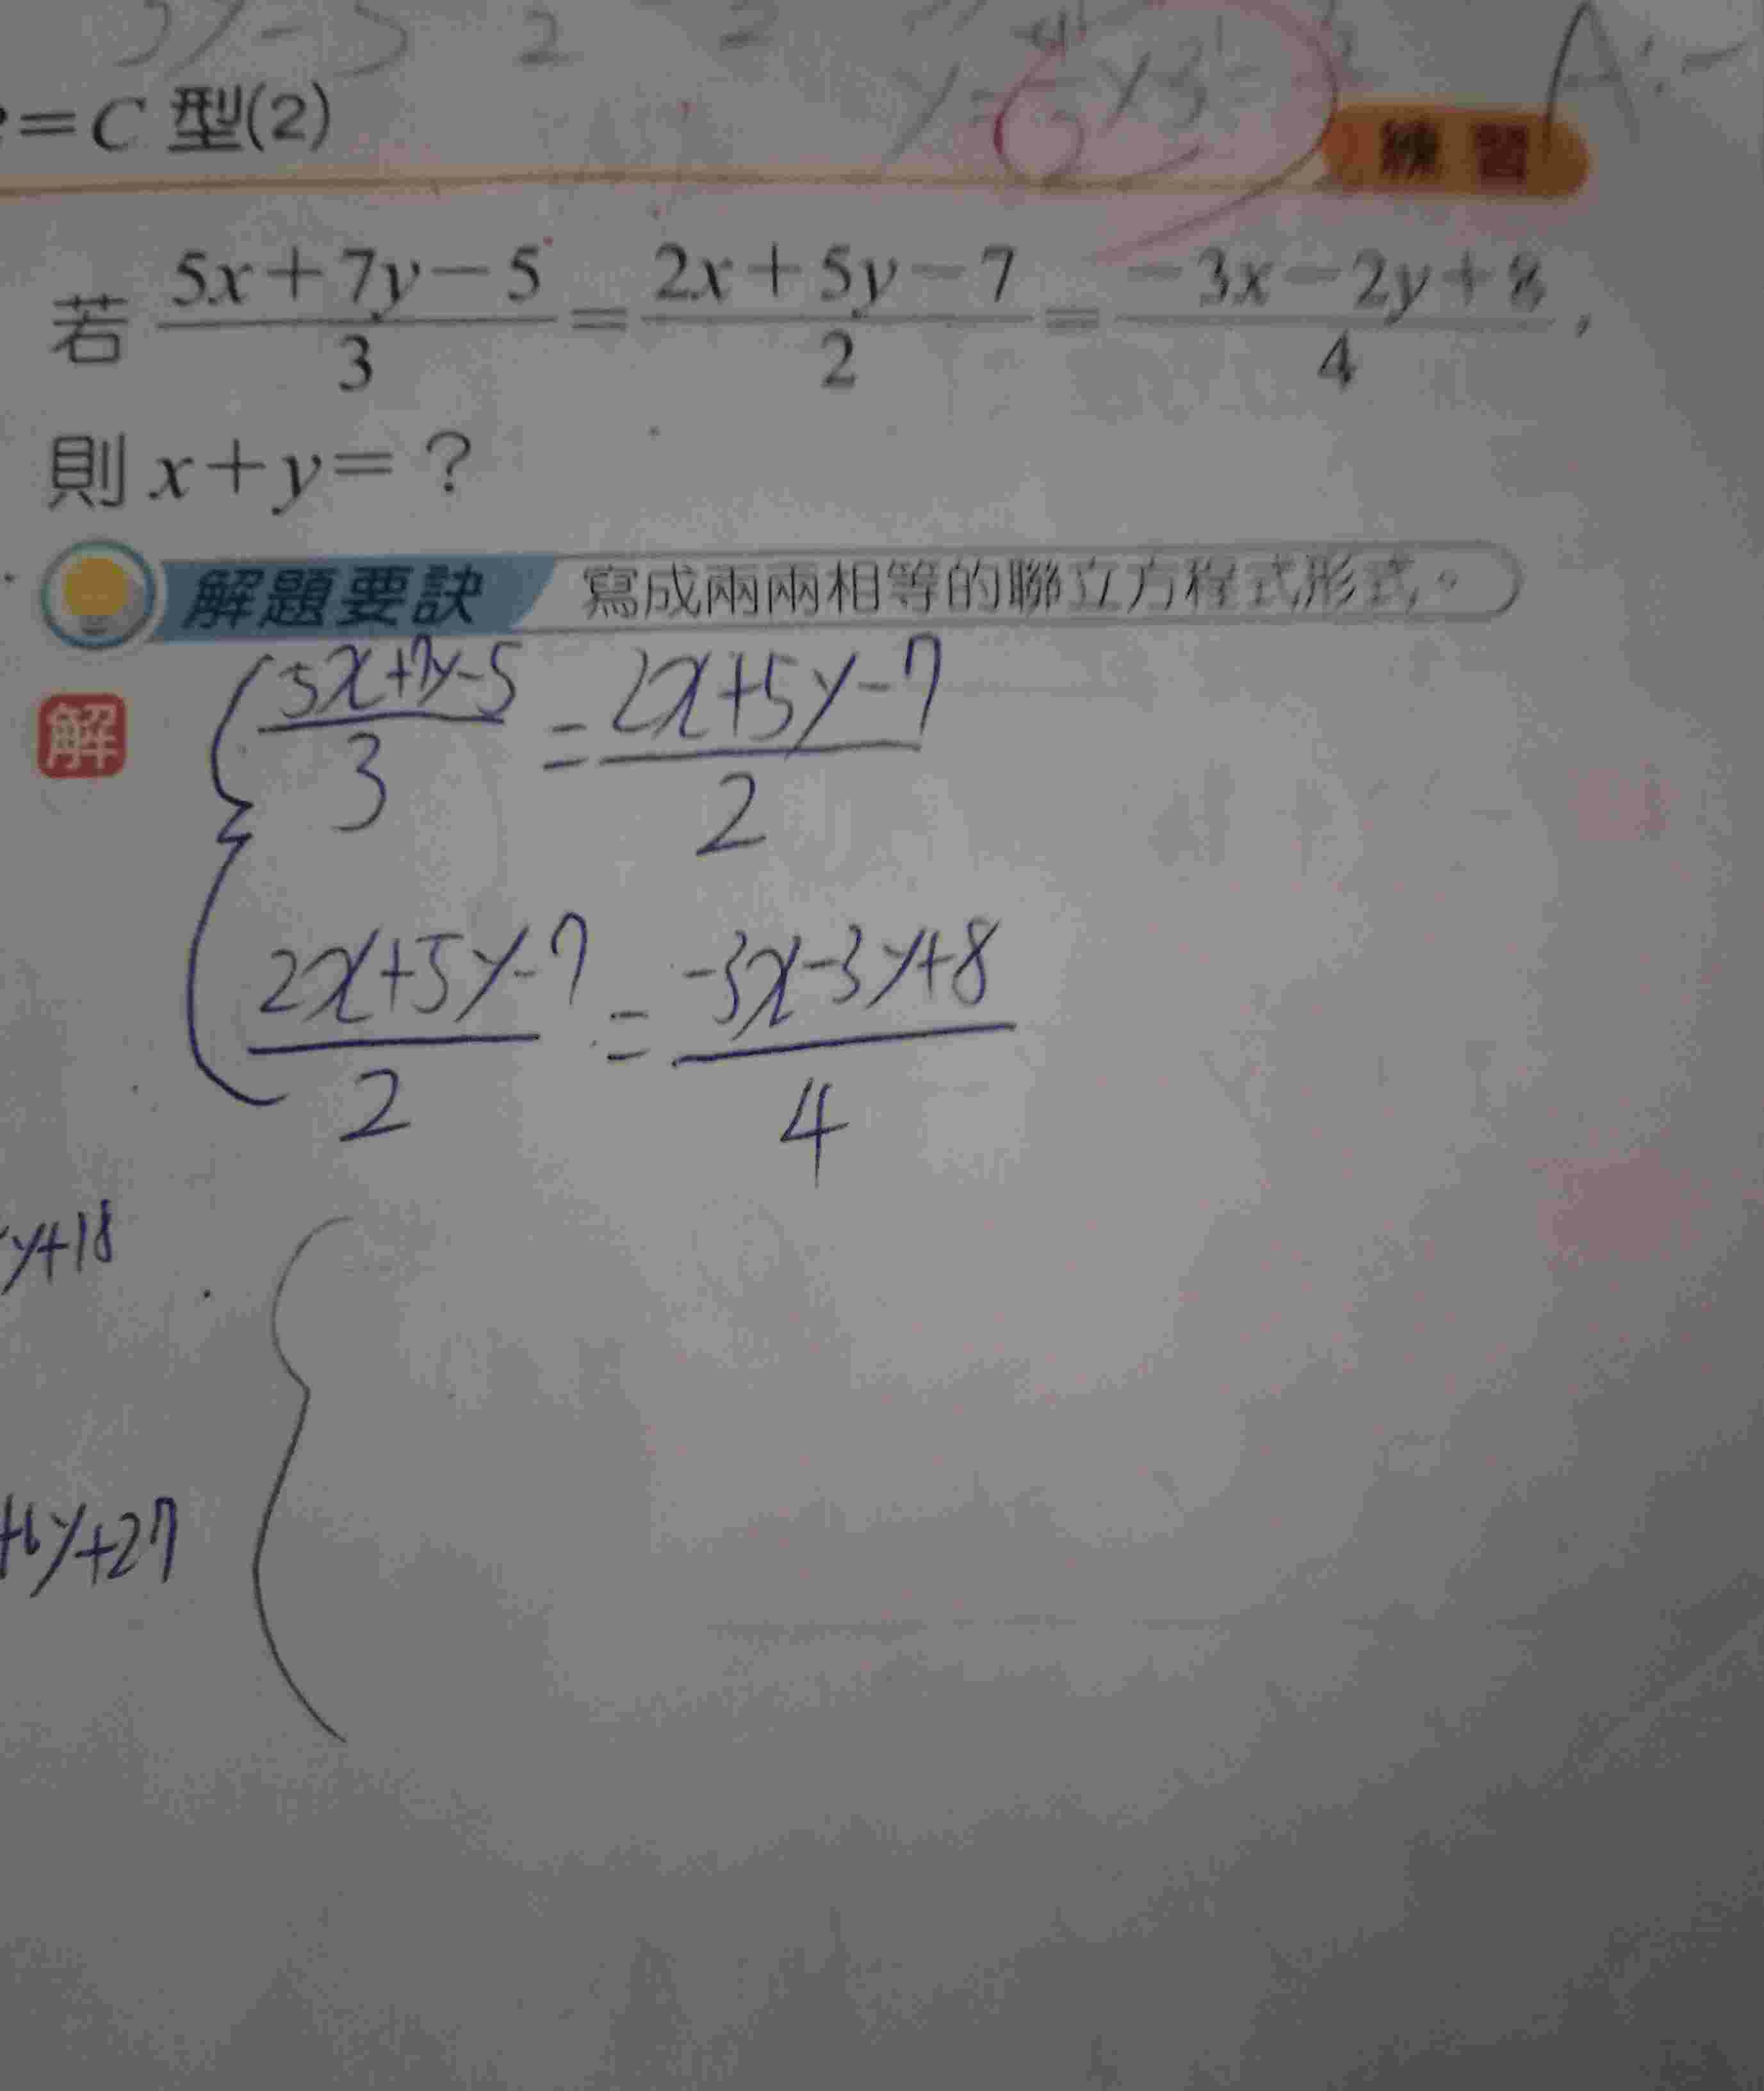 =C 型(2)
練習
若 \frac{5x+7y-5}{3}=\frac{2x+5y-7}{2}=\frac{-3x-2y+8}{4},
則 x+y=?
解題要訣 寫成兩兩相等的聯立方程式形式。
解
\frac{5x+7y-5}{3}=\frac{2x+5y-7}{2}
\frac{2x+5y-7}{2}=\frac{-3x-3y+8}{4}
y+18
+6y+27